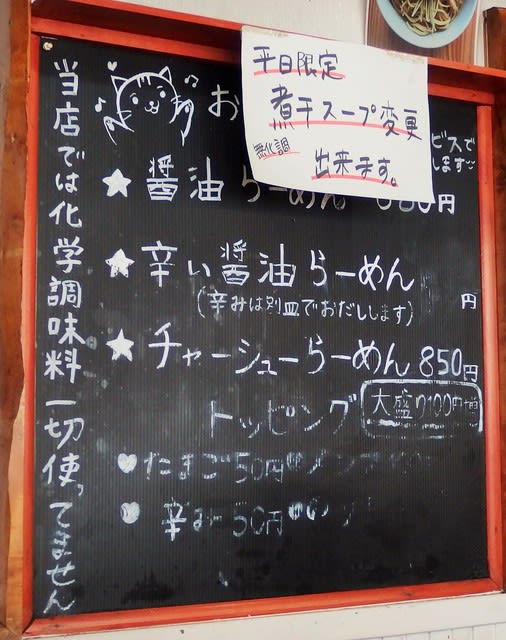 当店では化学調味料一切使ってません
平日限定
煮干スープ変更
無化調
出来ます。
お
ビスで
します
★醤油らーめん 0円
★辛い醤油らーめん 円
(辛みは別皿でおだしします)
★チャーシューらーめん 850円
トッピング
大盛り100円増
♥たまご50円
♥辛み50円